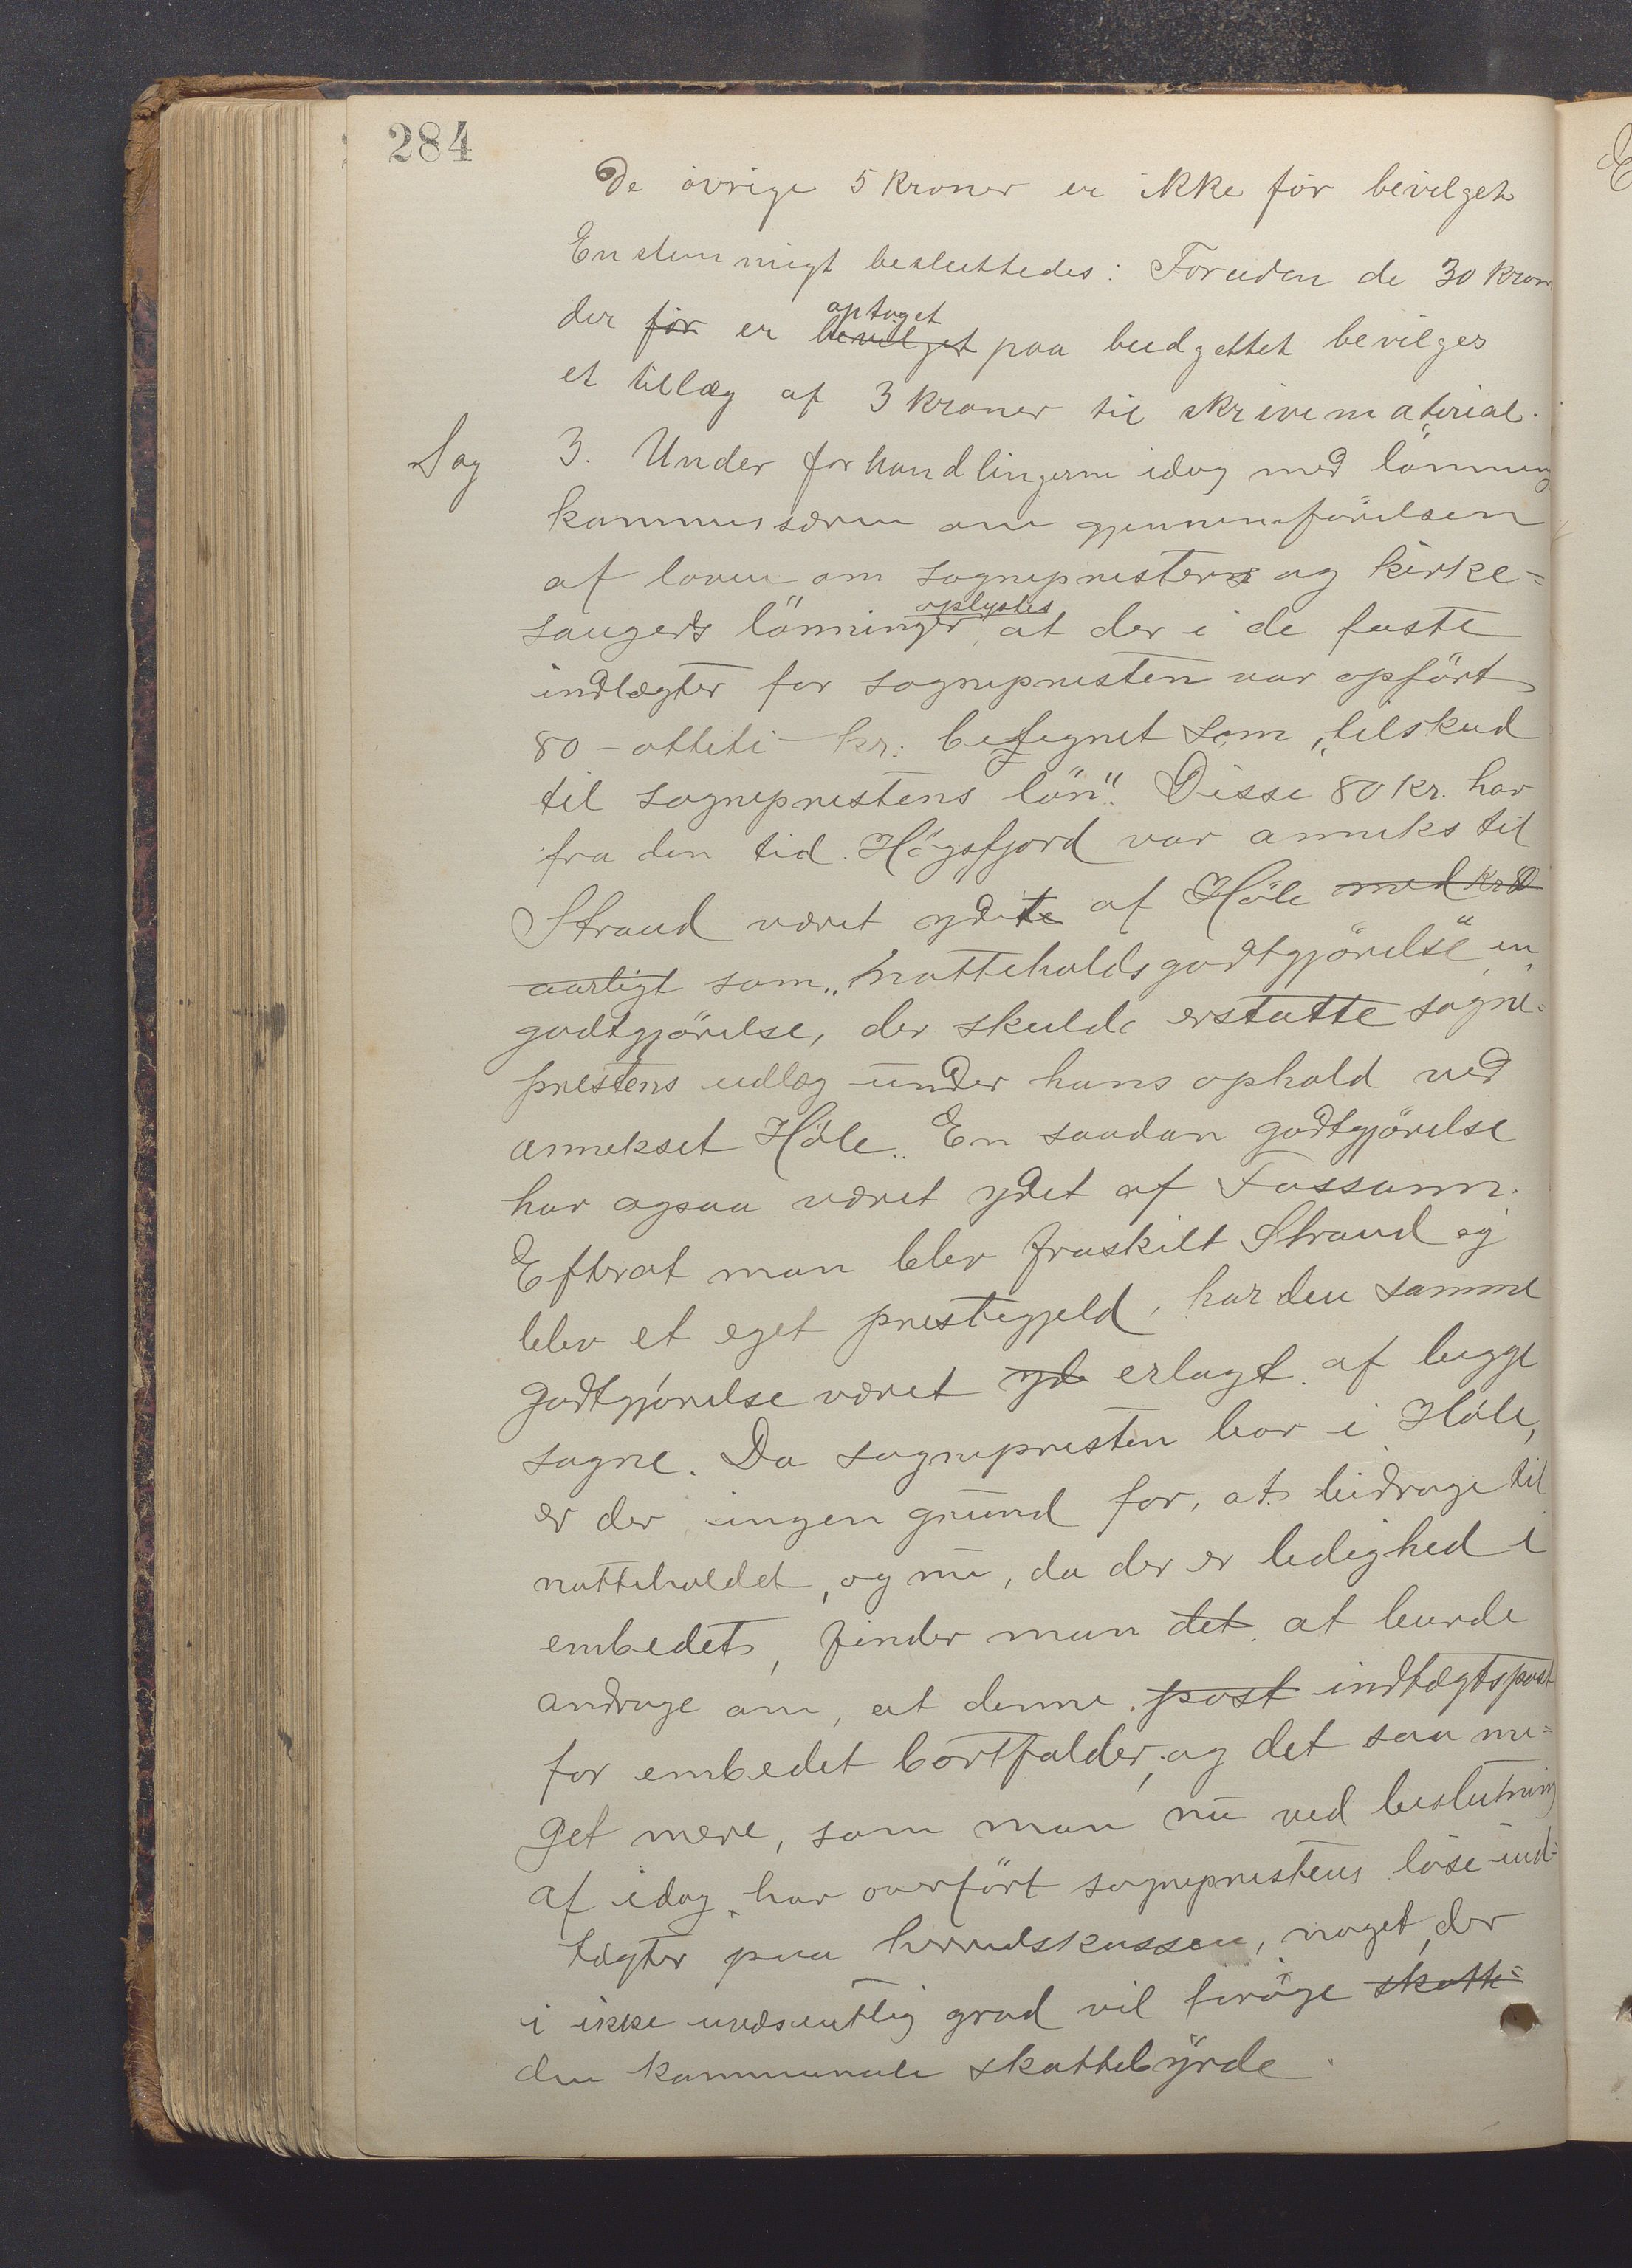 284
De øvrige 5 kroner er ikke før bevilget
Enstemmigt besluttedes: Foruden de 30 kron
optaget
der før er bevilget paa budgettet bevilges
et tillæg af 3 kroner til skrivematerial.
Sag 3. Under forhandlingerne idag med lönning
kommissæren om gjennemförelsen
af loven om sognepresters og kirke=
oplystes
sangers lönninger, at der i de faste
indtægter for sognepresten var opfört
80 - otteti - kr. betegnet som „tilskud
til sogneprestens lön". Disse 80 kr. har
fra den tid Høgsfjord var anneks til
Strand været ydet af Høle med kr 80
aarligt som „natteholdsgodtgjörelse" en
godtgjörelse, der skulde erstatte sogne=
prestens udlæg under hans ophold ved
annekset Høle. En saadan godtgjörelse
har ogsaa været ydet af Fossann.
Efterat man blev fraskilt Strand og
blev et eget prestegjeld, har den samme
godtgjørelse været yde erlagt af begge
sogne. Da sognepresten bor i Høle,
er der ingen grund for, at bidrage til
natteholdet, og nu, da der er ledighed i
embedet, finder man det at burde
andrage om, at denne post indtægtspost
for embedet bortfalder, og det saa me=
get mere, som man nu ved beslutning
af idag har overfört sogneprestens löse ind=
tægter paa herredskassen, noget, der
i ikke uvæsentlig grad vil foröge skatte=
den kommunale skattebyrde.